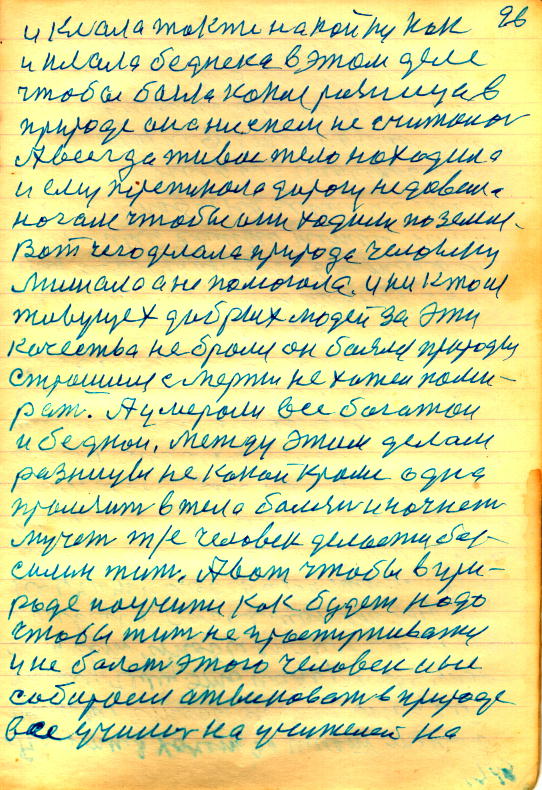 96
и клала также на койку как
и клала бедняка в этом деле
чтобы была какая разница в
природе она ни с кем не считалась
А всегда живое тело находила
и ему преграждала дорогу не давала
ногам чтобы они ходили по земле.
Вот чего делала природа человеку
мешала а не помогала. и ни кто из
живущех добрых людей за эти
качества не брался он боялся природы
страшился смерти не хотел поми-
рат. А умерали все богатои
и беднои. Между этим делам
разницы не какой кроме одна
 в тела болячку и начнет
мучет т/е человек делается без-
силин жит. А вот чтобы в при-
роде научится как будет надо
чтобы жит не простуживатся
и не болет этого человек и не
собирался атвиковат в природе
все учился на учителей на